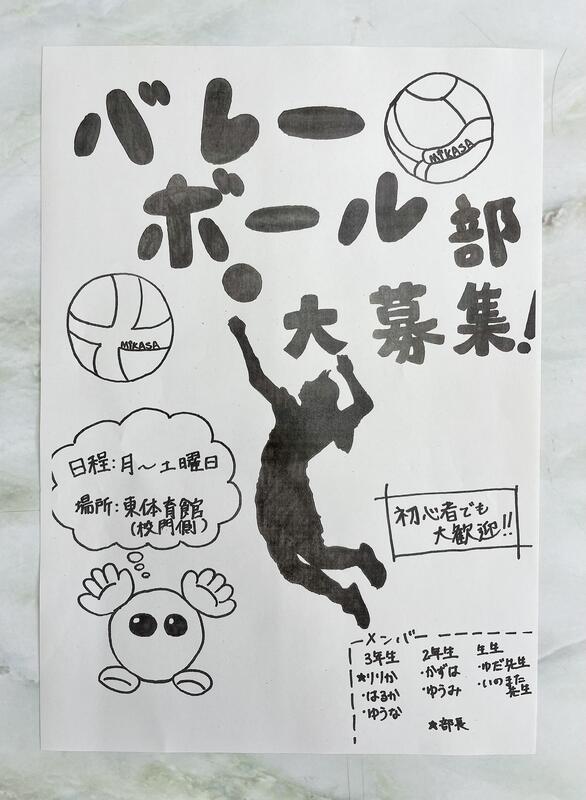 バレー
ボール部
大募集!
MIKASA
MIKASA
日程:月〜土曜日
場所:東体育館
(校門側)
初心者でも
大歓迎!!
メンバー
3年生
★りりか
・はるか
・ゆうな
2年生
・かずは
・ゆうみ
★部長
生生
・ゆだ先生
・いのまた
先生